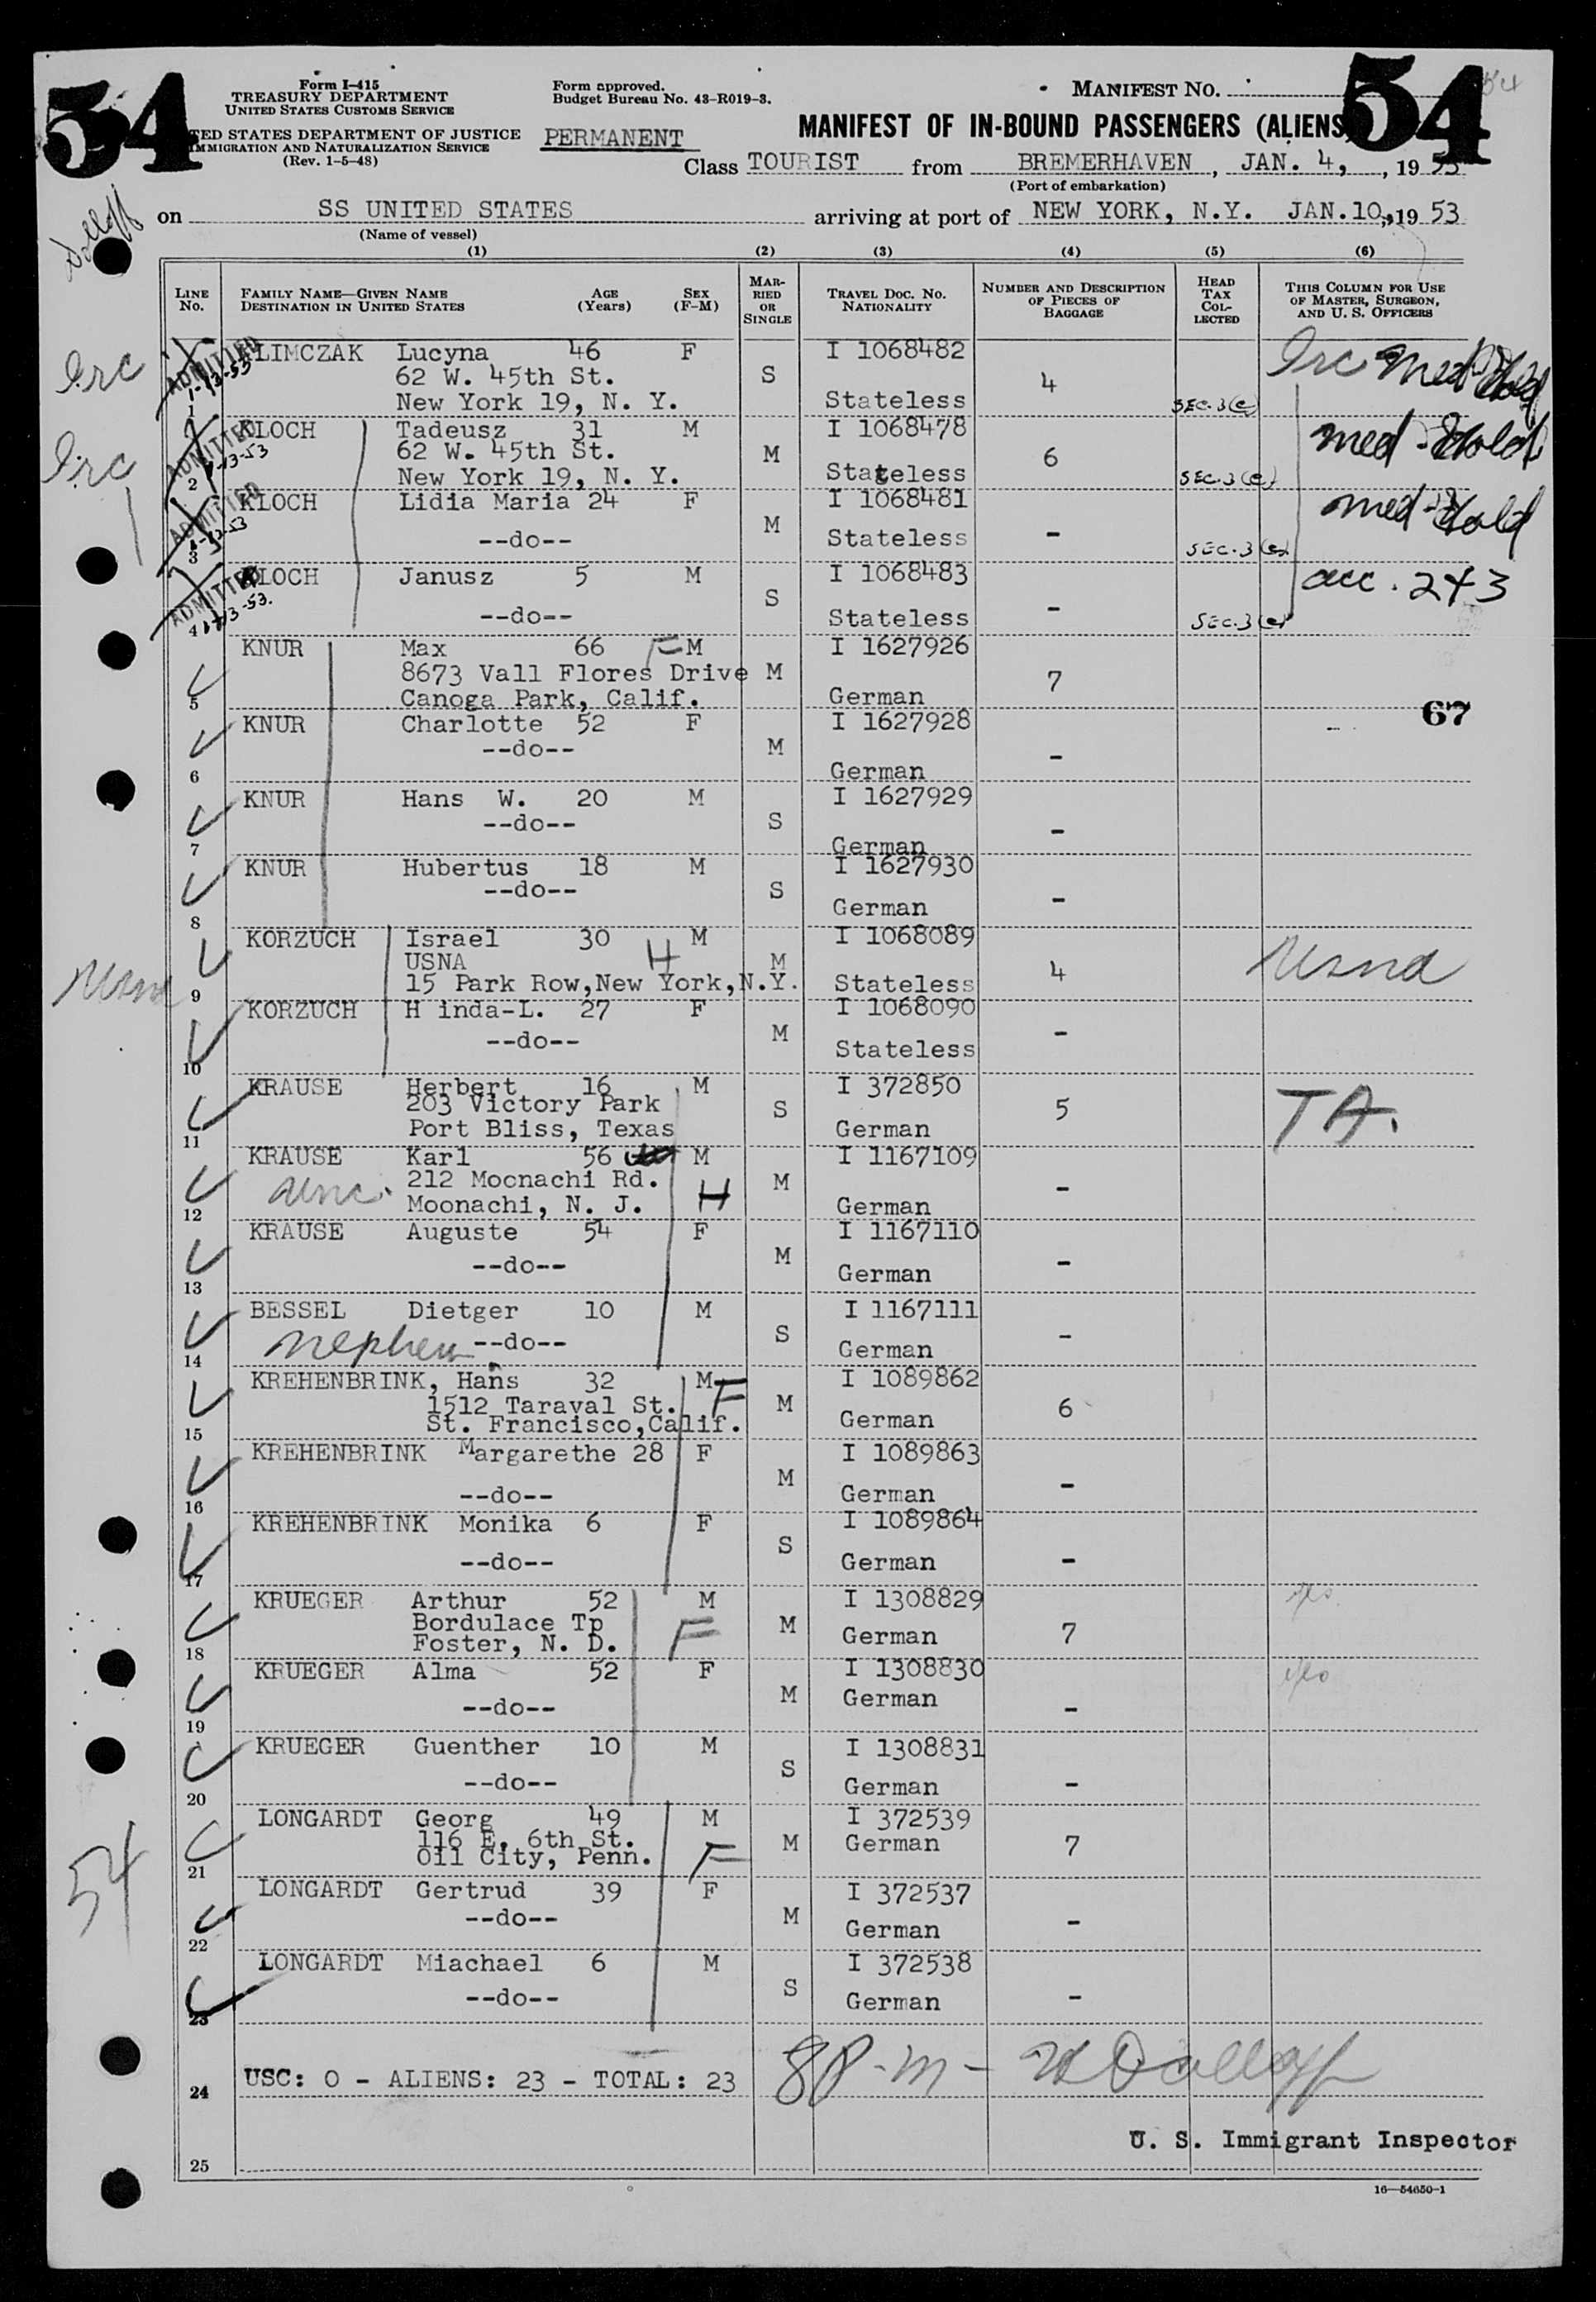 54
Form I-415
TREASURY DEPARTMENT
UNITED STATES CUSTOMS SERVICE
TED STATES DEPARTMENT OF JUSTICE
MMIGRATION AND NATURALIZATION SERVICE
(Rev. 1-5-48)
Form approved.
Budget Bureau No. 43-R019-3.
PERMANENT
MANIFEST NO.
54
54
MANIFEST OF IN-BOUND PASSENGERS (ALIENS
Class TOURIST from BREMERHAVEN, JAN. 4, , 19 53
(Port of embarkation)
on SS UNITED STATES arriving at port of NEW YORK, N.Y. JAN.10,,19 53
(Name of vessel)
(1) (2) (3) (4) (5) (6)
LINE NO.
FAMILY NAME—GIVEN NAME
DESTINATION IN UNITED STATES
AGE (Years)
SEX (F-M)
MARRIED OR SINGLE
TRAVEL DOC. NO.
NATIONALITY
NUMBER AND DESCRIPTION OF PIECES OF BAGGAGE
HEAD TAX COLLECTED
THIS COLUMN FOR USE OF MASTER, SURGEON, AND U. S. OFFICERS
Irc ADMITTED 1-13-53
1 KLIMCZAK Lucyna 46 F S I 1068482 4 Irc Med-Hold
62 W. 45th St.
New York 19, N. Y. Stateless SEC. 3(e)
Irc ADMITTED 1-13-53
2 KLOCH Tadeusz 31 M M I 1068478 6 med-Hold
62 W. 45th St.
New York 19, N. Y. Stateless SEC. 3(e)
ADMITTED 1-13-53
3 KLOCH Lidia Maria 24 F M I 1068481 - med-Hold
--do-- Stateless SEC. 3(e)
ADMITTED 1-13-53.
4 KLOCH Janusz 5 M S I 1068483 - acc. 2+3
--do-- Stateless SEC. 3(e)
5 KNUR Max 66 F M M I 1627926 7
8673 Vall Flores Drive
Canoga Park, Calif. German
67
6 KNUR Charlotte 52 F M I 1627928 -
--do-- German
7 KNUR Hans W. 20 M S I 1627929 -
--do-- German
8 KNUR Hubertus 18 M S I 1627930 -
--do-- German
9 KORZUCH Israel 30 M M I 1068089 4 Usna
Usna
USNA H
15 Park Row,New York,N.Y. Stateless
10 KORZUCH H inda-L. 27 F M I 1068090 -
--do-- Stateless
11 KRAUSE Herbert 16 M S I 372850 5 TA.
203 Victory Park
Port Bliss, Texas German
12 KRAUSE Karl 56 M M I 1167109 -
212 Mocnachi Rd.
Moonachi, N. J. H German
13 KRAUSE Auguste 54 F M I 1167110 -
--do-- German
14 BESSEL Dietger 10 M S I 1167111 -
nephew --do-- German
15 KREHENBRINK, Hans 32 M F M I 1089862 6
1512 Taraval St.
St. Francisco,Calif. German
16 KREHENBRINK Margarethe 28 F M I 1089863 -
--do-- German
17 KREHENBRINK Monika 6 F S I 1089864 -
--do-- German
18 KRUEGER Arthur 52 M M I 1308829 7 yes
Bordulace Tp
Foster, N. D. F German
19 KRUEGER Alma 52 F M I 1308830 - yes
--do-- German
20 KRUEGER Guenther 10 M S I 1308831 -
--do-- German
21 LONGARDT Georg 49 M M I 372539 7
116 E. 6th St.
Oil City, Penn. F German
54
22 LONGARDT Gertrud 39 F M I 372537 -
--do-- German
23 LONGARDT Miachael 6 M S I 372538 -
--do-- German
24 USC: 0 - ALIENS: 23 - TOTAL: 23
8P-m-
U. S. Immigrant Inspector
25
16—54650-1